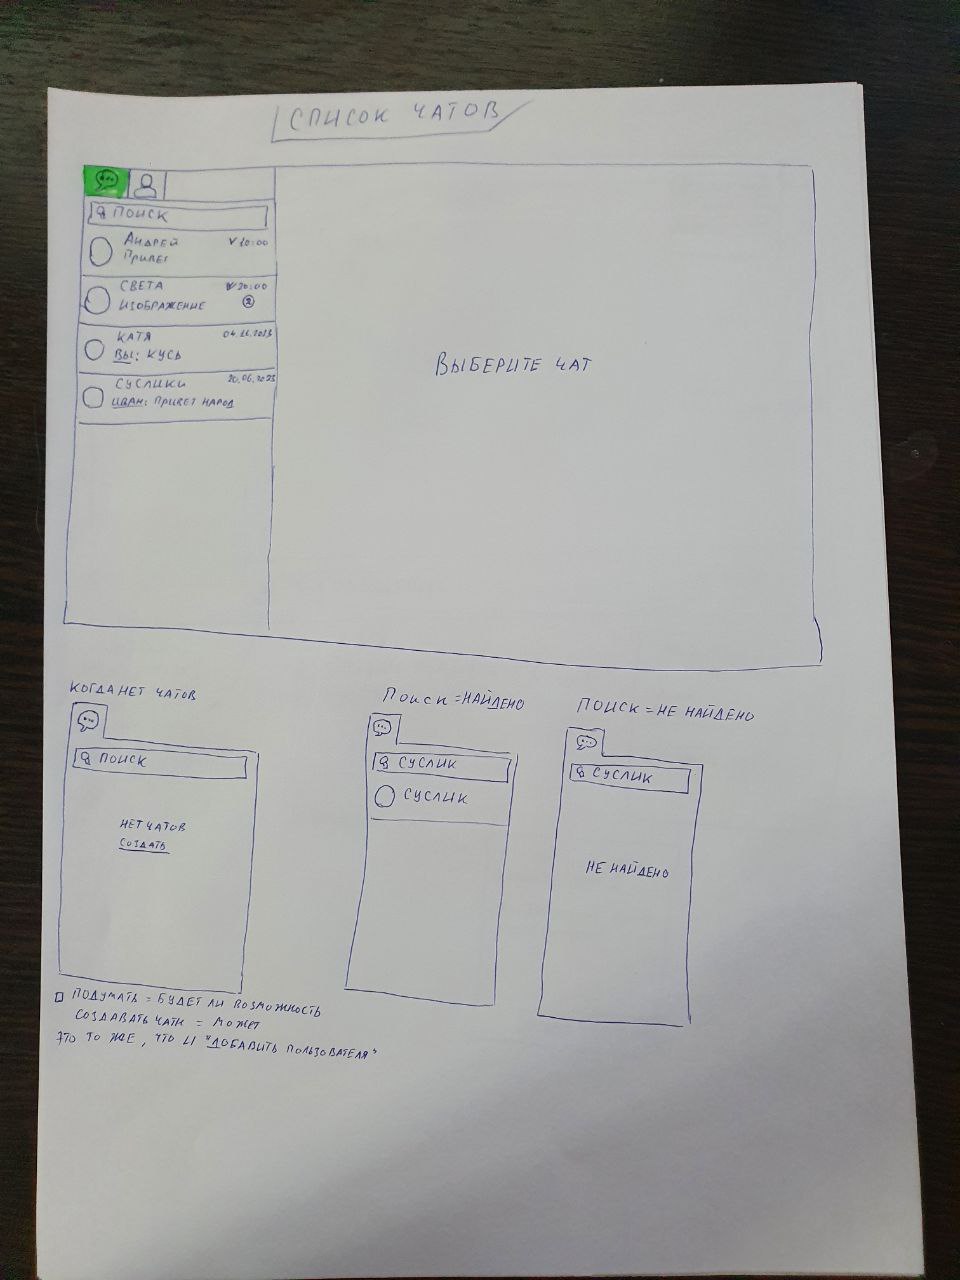 СПИСОК ЧАТОВ
ПОИСК
АНДРЕЙ 20:00
ПРИВЕТ
СВЕТА 20:00
ИЗОБРАЖЕНИЕ 2
КАТЯ 04.11.2023
ВЫ: КУСЬ
СУСЛИКИ 20.06.2023
ИВАН: ПРИВЕТ НАРОД
ВЫБЕРИТЕ ЧАТ
КОГДА НЕТ ЧАТОВ
ПОИСК
НЕТ ЧАТОВ
СОЗДАТЬ
ПОИСК = НАЙДЕНО
СУСЛИК
СУСЛИК
ПОИСК = НЕ НАЙДЕНО
СУСЛИК
НЕ НАЙДЕНО
ПОДУМАТЬ = БУДЕТ ЛИ ВОЗМОЖНОСТЬ
СОЗДАВАТЬ ЧАТЫ = МОЖЕТ
ЭТО ТО ЖЕ, ЧТО И "ДОБАВИТЬ ПОЛЬЗОВАТЕЛЯ"